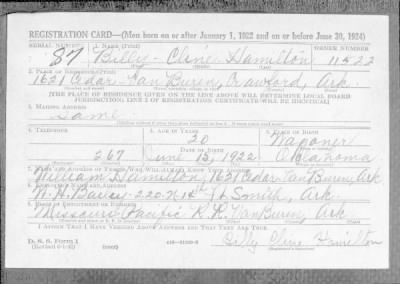 REGISTRATION CARD—(Men born on or after January 1, 1922 and on or before June 30, 1924)
SERIAL NUMBER 1. NAME (Print) ORDER NUMBER
87 Billy - Cline Hamilton 11522
2. PLACE OF RESIDENCE (Print)
1621 Cedar Van Buren, Crawford, Ark.
[THE PLACE OF RESIDENCE GIVEN ON THE LINE ABOVE WILL DETERMINE LOCAL BOARD
JURISDICTION; LINE 2 OF REGISTRATION CERTIFICATE WILL BE IDENTICAL]
3. MAILING ADDRESS
Same
4. TELEPHONE 5. AGE IN YEARS 6. PLACE OF BIRTH
20 Wagoner
DATE OF BIRTH
267 June 13, 1922 Oklahoma
7. NAME AND ADDRESS OF PERSON WHO WILL ALWAYS KNOW YOUR ADDRESS
William Hamilton, 1621 Cedar, Van Buren, Ark
8. EMPLOYER'S NAME AND ADDRESS
220-N 14th Ft. Smith, Ark.
9. PLACE OF EMPLOYMENT OR BUSINESS
Missouri Pacific R.R. Van Buren, Ark
I AFFIRM THAT I HAVE VERIFIED ABOVE ANSWERS AND THAT THEY ARE TRUE.
D. S. S. Form 1
(over)
Billy Cline Hamilton